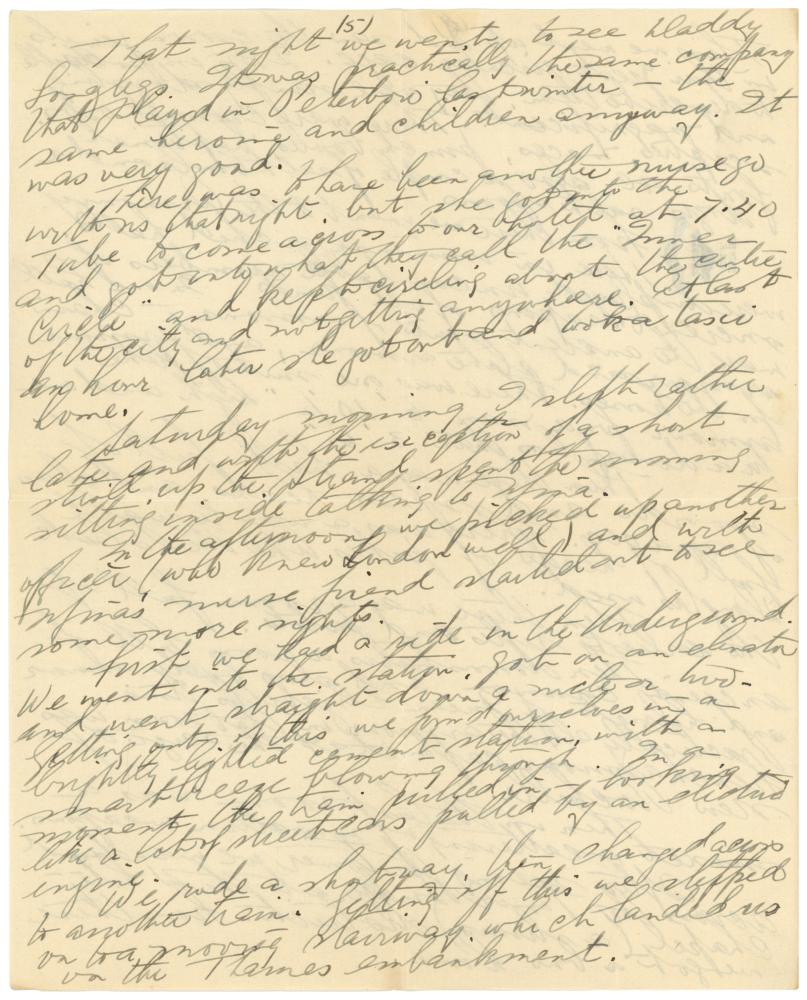 (5)
That night we went to see Daddy
Longlegs. It was practically the same company
that played in Peterboro last winter – the
same heroine and children anyway. It
was very good.
There was to have been another nurse go
with us that night, but she got into the
Tube to come across to our hotel at 7.40
and got into what they call the "Inner
Circle" and kept circling about the centre
of the city and not getting anywhere. At last
an hour later she got out and took a taxi
home.
Saturday morning I slept rather
late and with the exception of a short
stroll up the Strand spent the morning
sitting inside talking to Nina.
In the afternoon we picked up another
officer (who knew London well) and with
Nina's nurse friend started out to see
some more sights.
First we had a ride in the Underground.
We went into the station, got on an elevator
and went straight down a mile or two –
getting out of this we found ourselves in a
brightly lighted cement station, with a
smart breeze blowing through. In a
moment the train pulled in – looking
like a lot of street cars pulled by an electric
engine.
We rode a short way, then changed across
to another train. Getting off this we stepped
on to a moving stairway which landed us
on the Thames embankment.